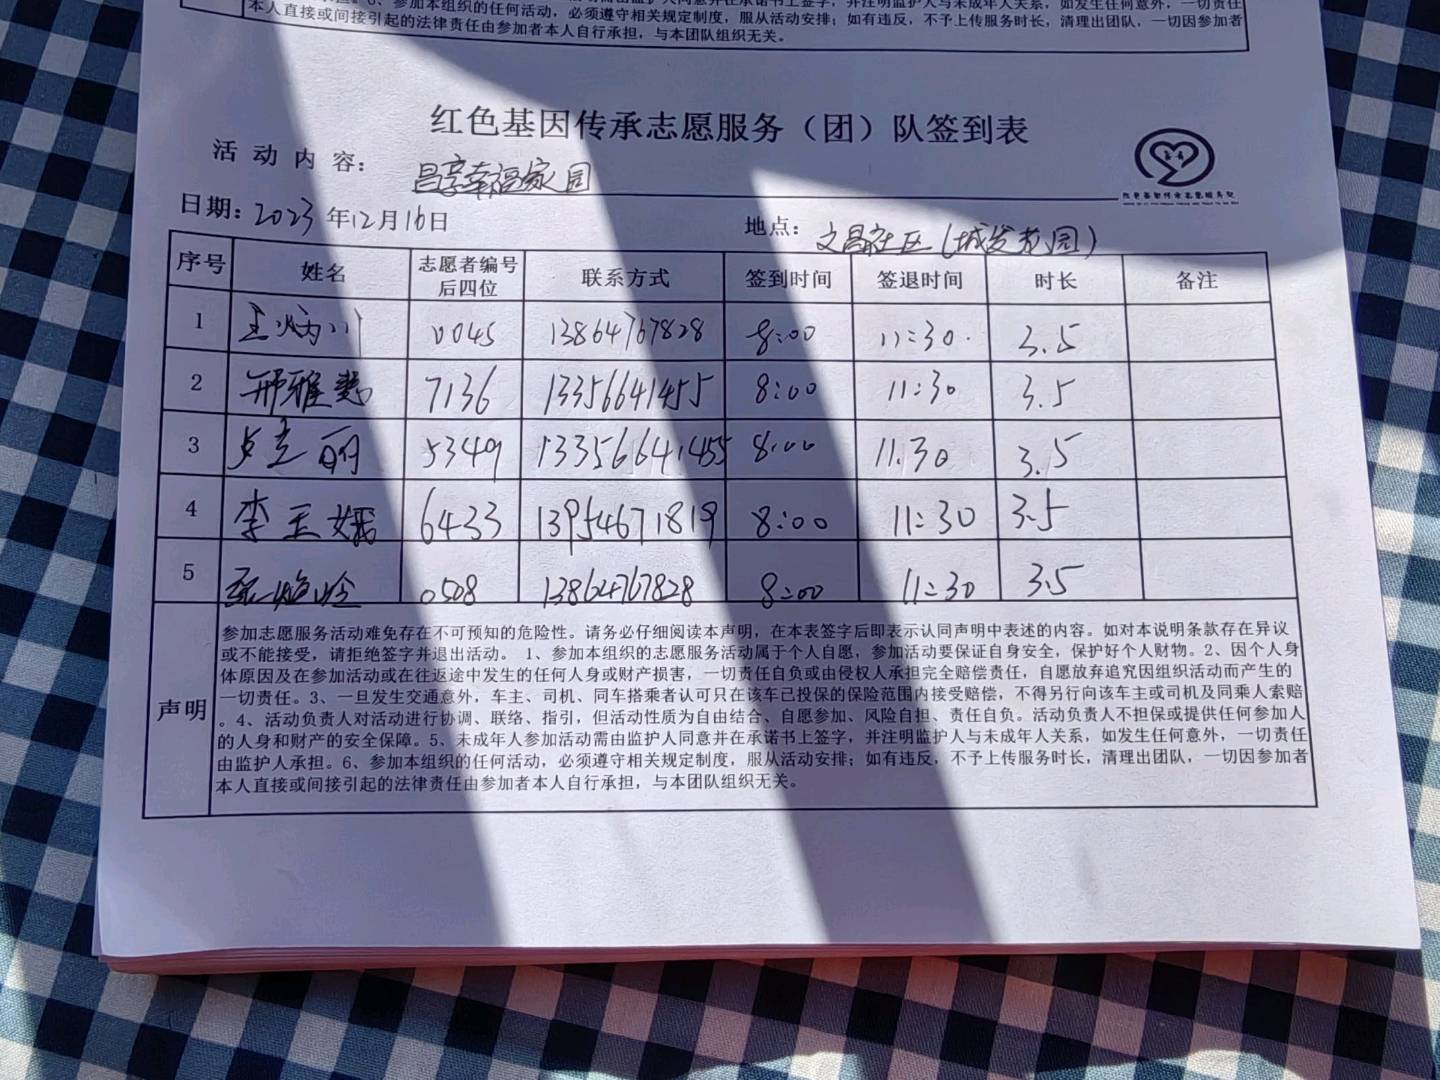 本人直接或间接引起的法律责任由参加者本人自行承担，与本团队组织无关。
红色基因传承志愿服务（团）队签到表
活动内容：昌享幸福家园
日期：2023年12月16日 地点：文昌社区（城发花园）
序号 姓名 志愿者编号后四位 联系方式 签到时间 签退时间 时长 备注
1 王炳川 0045 13864767828 8:00 11:30 3.5
2 邢雅 7136 13356641455 8:00 11:30 3.5
3 卢立丽 5349 133566641455 8:00 11:30 3.5
4 李玉娥 6433 13954671819 8:00 11:30 3.5
5 张 0508 13864767828 8:00 11:30 3.5
声明
参加志愿服务活动难免存在不可预知的危险性。请务必仔细阅读本声明，在本表签字后即表示认同声明中表述的内容。如对本说明条款存在异议
或不能接受，请拒绝签字并退出活动。 1、参加本组织的志愿服务活动属于个人自愿，参加活动要保证自身安全，保护好个人财物。2、因个人身
体原因及在参加活动或在往返途中发生的任何人身或财产损害，一切责任自负或由侵权人承担完全赔偿责任，自愿放弃追究因组织活动而产生的
一切责任。3、一旦发生交通意外，车主、司机、同车搭乘者认可只在该车已投保的保险范围内接受赔偿，不得另行向该车主或司机及同乘人索赔
。4、活动负责人对活动进行协调、联络、指引，但活动性质为自由结合、自愿参加、风险自担、责任自负。活动负责人不担保或提供任何参加人
的人身和财产的安全保障。5、未成年人参加活动需由监护人同意并在承诺书上签字，并注明监护人与未成年人关系，如发生任何意外，一切责任
由监护人承担。6、参加本组织的任何活动，必须遵守相关规定制度，服从活动安排；如有违反，不予上传服务时长，清理出团队，一切因参加者
本人直接或间接引起的法律责任由参加者本人自行承担，与本团队组织无关。